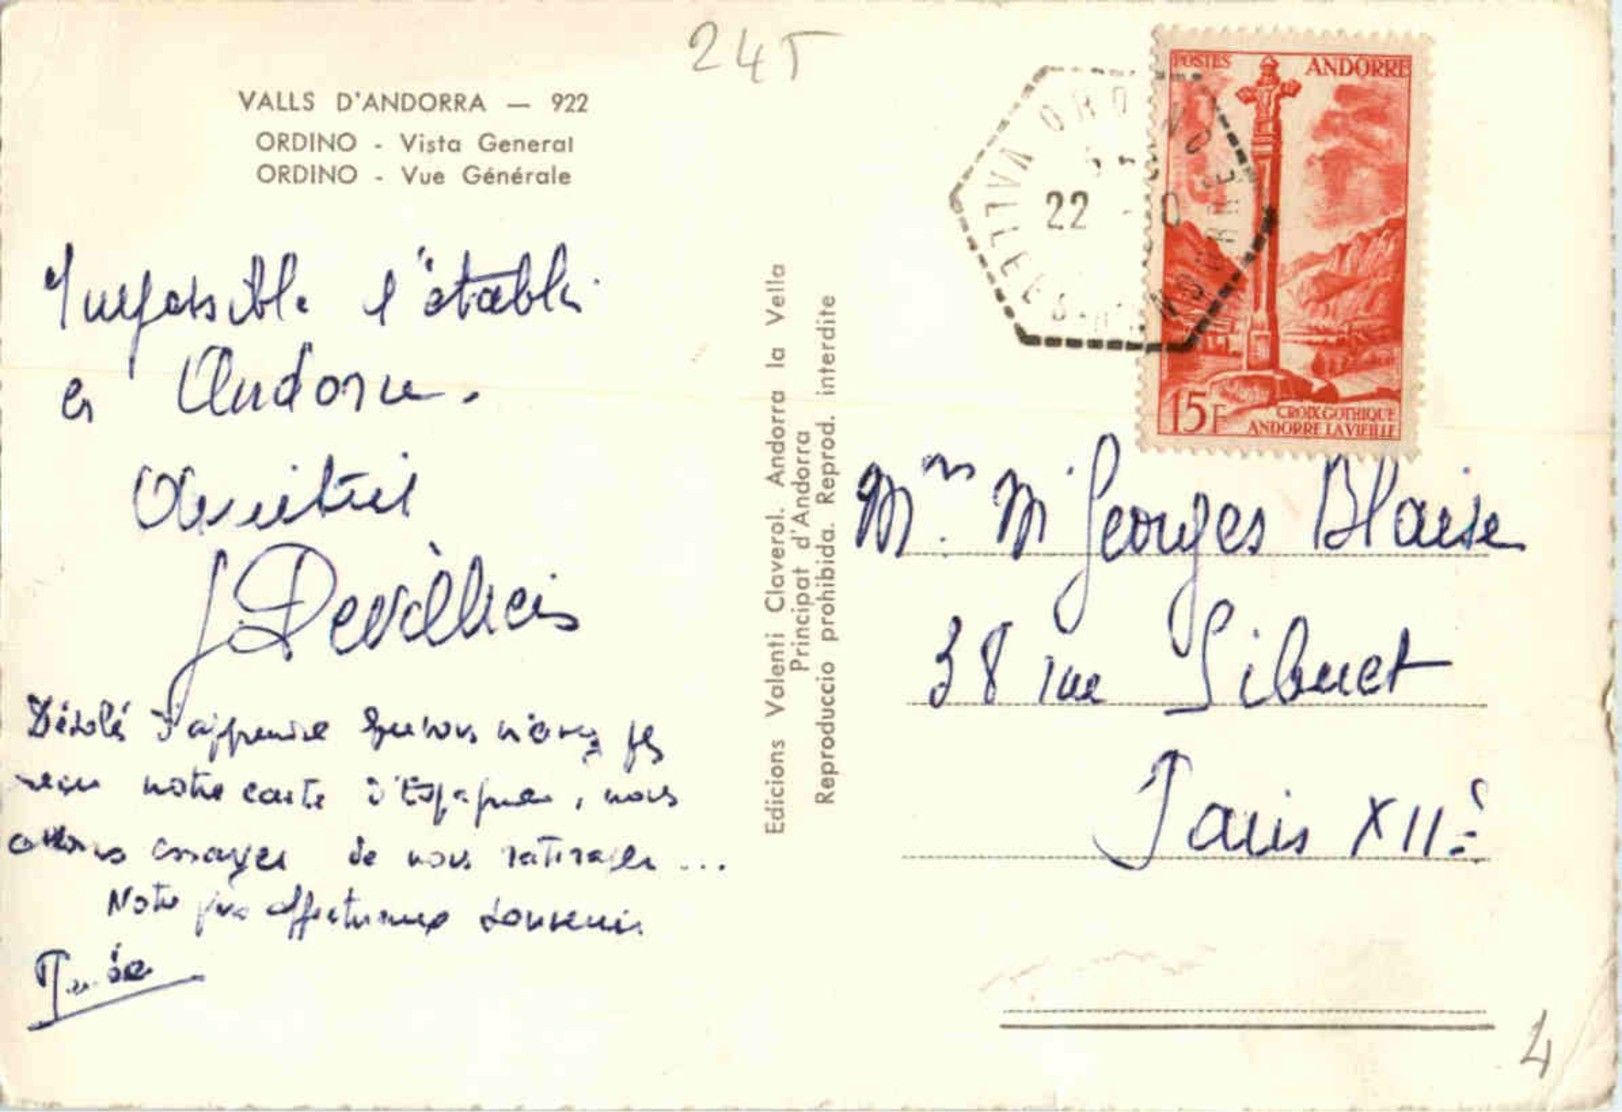 24T
VALLS D'ANDORRA — 922
ORDINO - Vista General
ORDINO - Vue Générale
Impossible s'établir
en Andorre.
Amitiés
J Devill
Désolés d'apprendre que vous n'avez pas
reçu notre carte d'Espagne, nous
allons essayer de nous rattraper ...
Notre plus affectueux souvenir
Edicions Valenti Claverol. Andorra la Vella
Principat d'Andorra
Reproduccio prohibida. Reprod. interdite
POSTES ANDORRE
15F
CROIX GOTHIQUE
ANDORRE LA VIEILLE
ORDINO
22
VALLEES D'ANDORRE
Mme M Georges Blaise
38 rue Sibuet
Paris XIIe
4